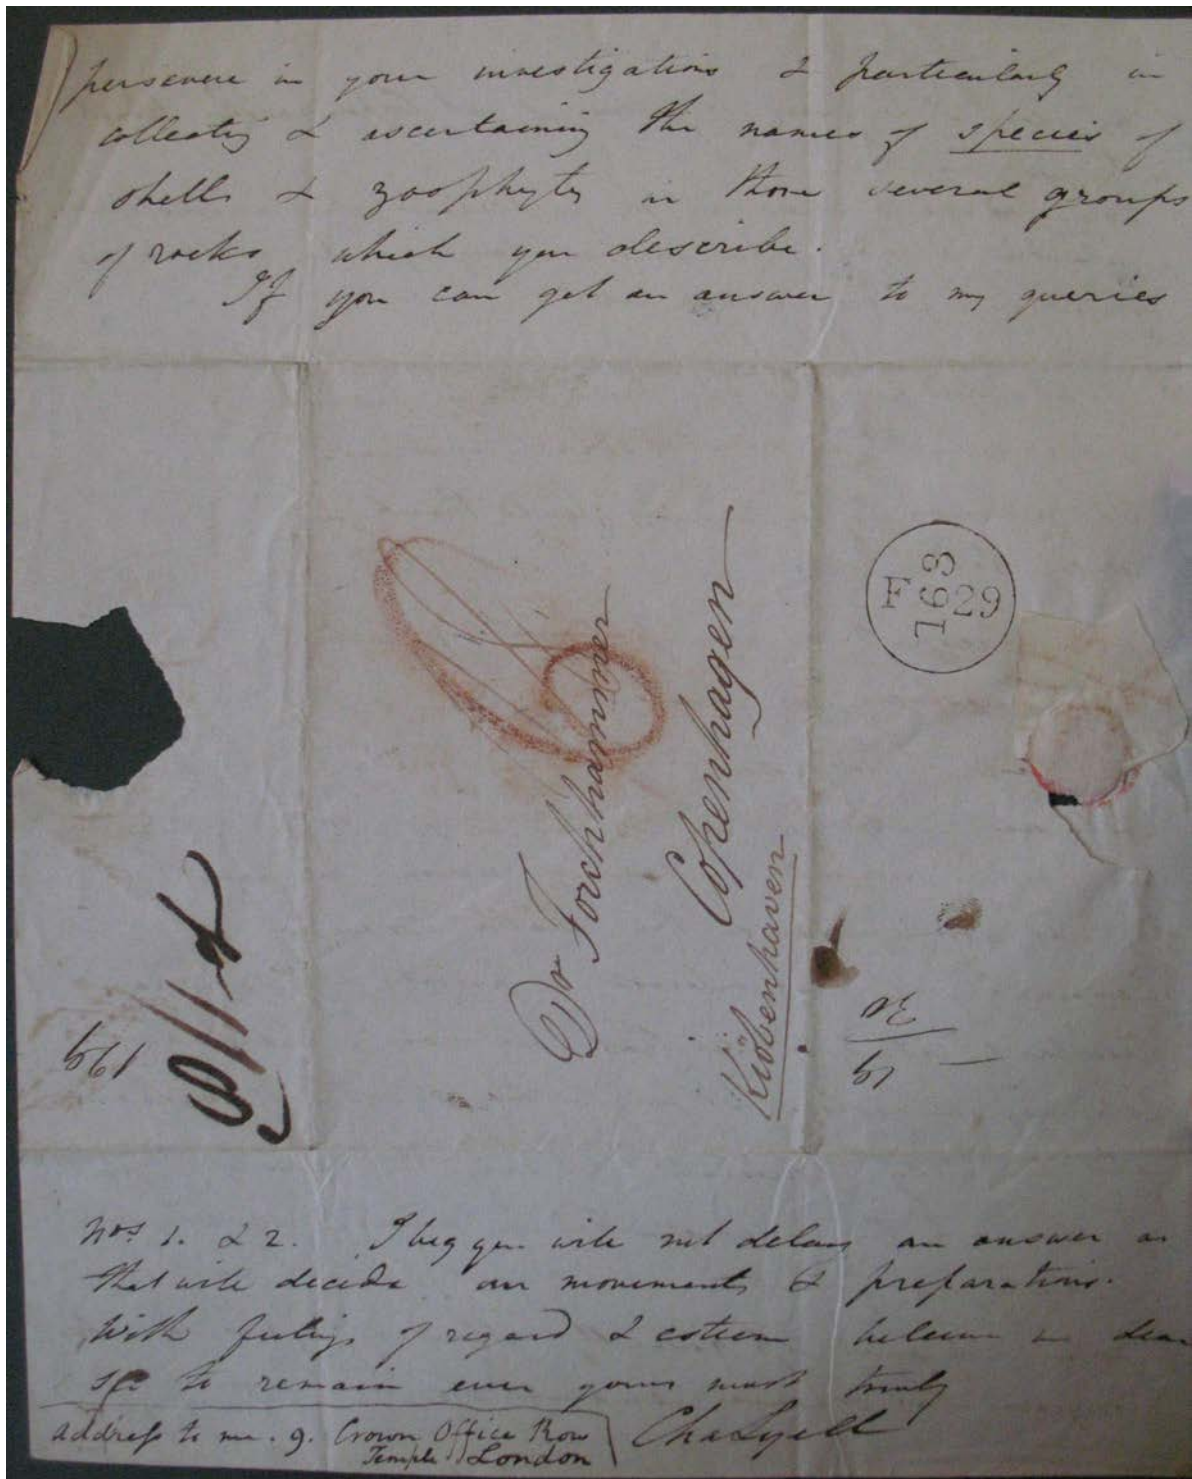 persevere in your investigations & particularly in
collecting & ascertaining the names of species of
shells & zoophytes in those several groups
of rocks which you describe.
If you can get an answer to my queries
Dr Forchhammer
Copenhagen
Kiöbenhaven
F 163 29
199
Nos 1. & 2. I beg you will not delay an answer as
that will decide our movements & preparations.
With feelings of regard & esteem believe me dear
Sir to remain ever yours most truly
Cha Lyell
address to me. 9. Crown Office Row
Temple London